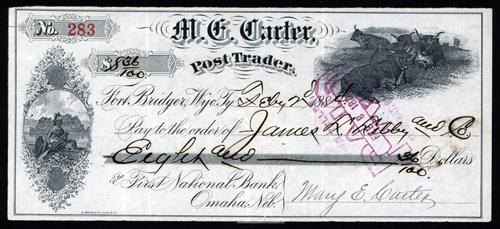 No. 283
M. E. Carter,
Post Trader.
$ 8 36/100
Fort Bridger, Wyo. Ty. Feby 2d 188
Pay to the order of James T. Libby and Co
Eight and 36/100 Dollars
To the First National Bank,
Omaha, Neb. Mary E. Carter